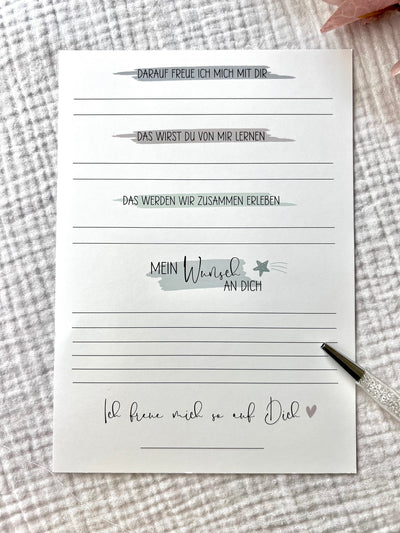 DARAUF FREUE ICH MICH MIT DIR
DAS WIRST DU VON MIR LERNEN
DAS WERDEN WIR ZUSAMMEN ERLEBEN
MEIN Wunsch
AN DICH
Ich freue mich so auf Dich